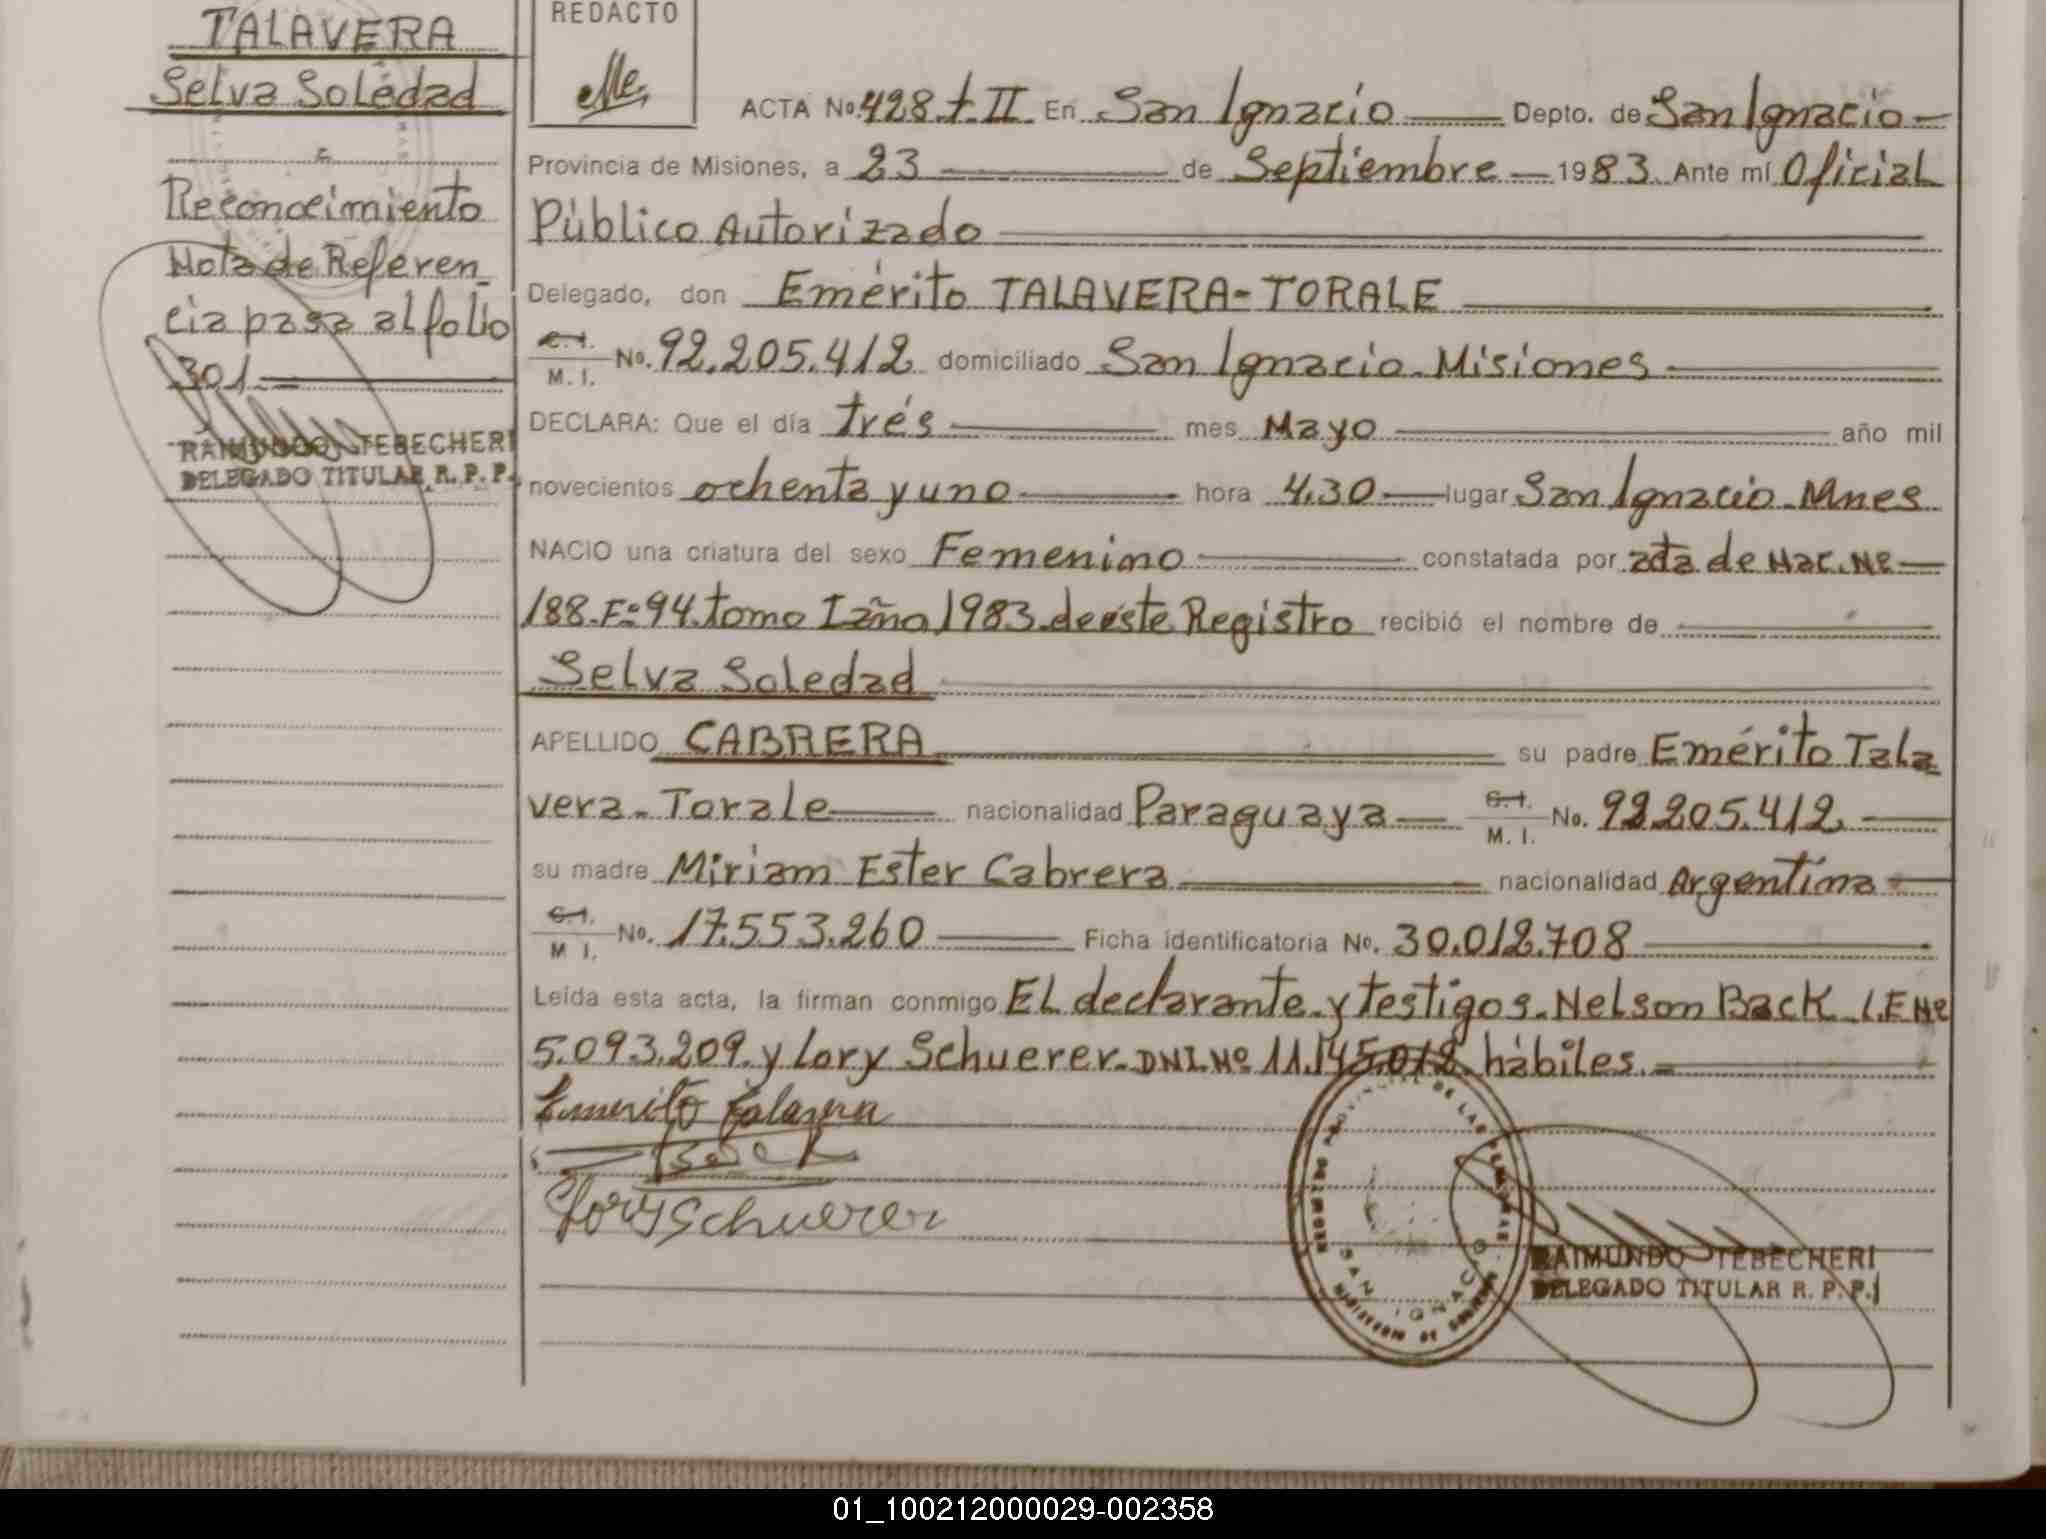 TALAVERA
Selva Soledad
Reconocimiento
Nota de Referen_
cia pasa al folio
301.
RAIMUNDO TEBECHERI
DELEGADO TITULAR R. P. P.
REDACTO
ACTA No. 428. t. II. En San Ignacio Depto. de San Ignacio
Provincia de Misiones, a 23 de Septiembre 1983. Ante mí Oficial
Público Autorizado
Delegado, don Emérito TALAVERA-TORALE
C.I.
M. I. No. 92.205.412 domiciliado San Ignacio. Misiones
DECLARA: Que el día trés mes Mayo año mil
novecientos ochenta y uno hora 4.30 lugar San Ignacio. Mnes
NACIO una criatura del sexo Femenino constatada por acta de Nac. Nº
188. Fº 94. tomo I año 1983. de este Registro recibió el nombre de
Selva Soledad
APELLIDO CABRERA su padre Emérito Tala
vera. Torale nacionalidad Paraguaya C.I.
M. I. No. 92.205.412.
su madre Miriam Ester Cabrera nacionalidad Argentina
C.I.
M I. No. 17.553.260 Ficha identificatoria No. 30.012.708
Leída esta acta, la firman conmigo El declarante. y testigos. Nelson Back. L.E Nº
5.093.209. y Lory Schuerer. DNI. Nº 11.145.012. hábiles.
Emerito Talavera
Back
Lory Schuerer
SAN IGNACIO
MINISTERIO DE GOBIERNO
RAIMUNDO TEBECHERI
DELEGADO TITULAR R. P. P.
01_100212000029-002358